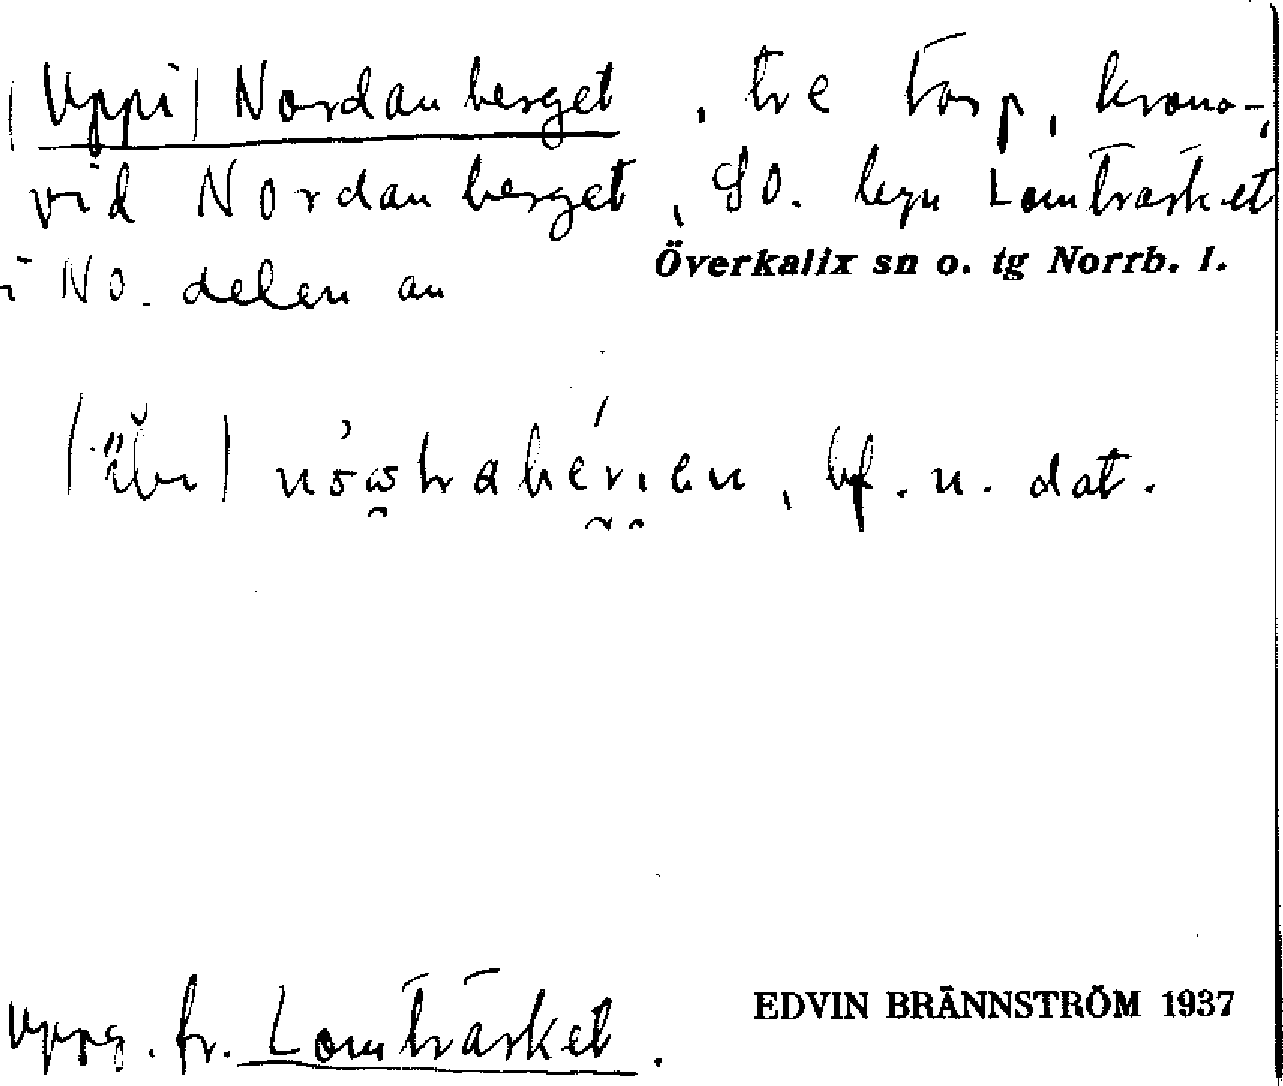 (Uppi) Nordanberget, tre torp, krono-,
vid Nordanberget, SO. byn Lomträsket
i NO. delen av
Överkalix sn o. tg Norrb. l.
bf. n. dat.
Uppg. fr. Lomträsket.
EDVIN BRÄNNSTRÖM 1937